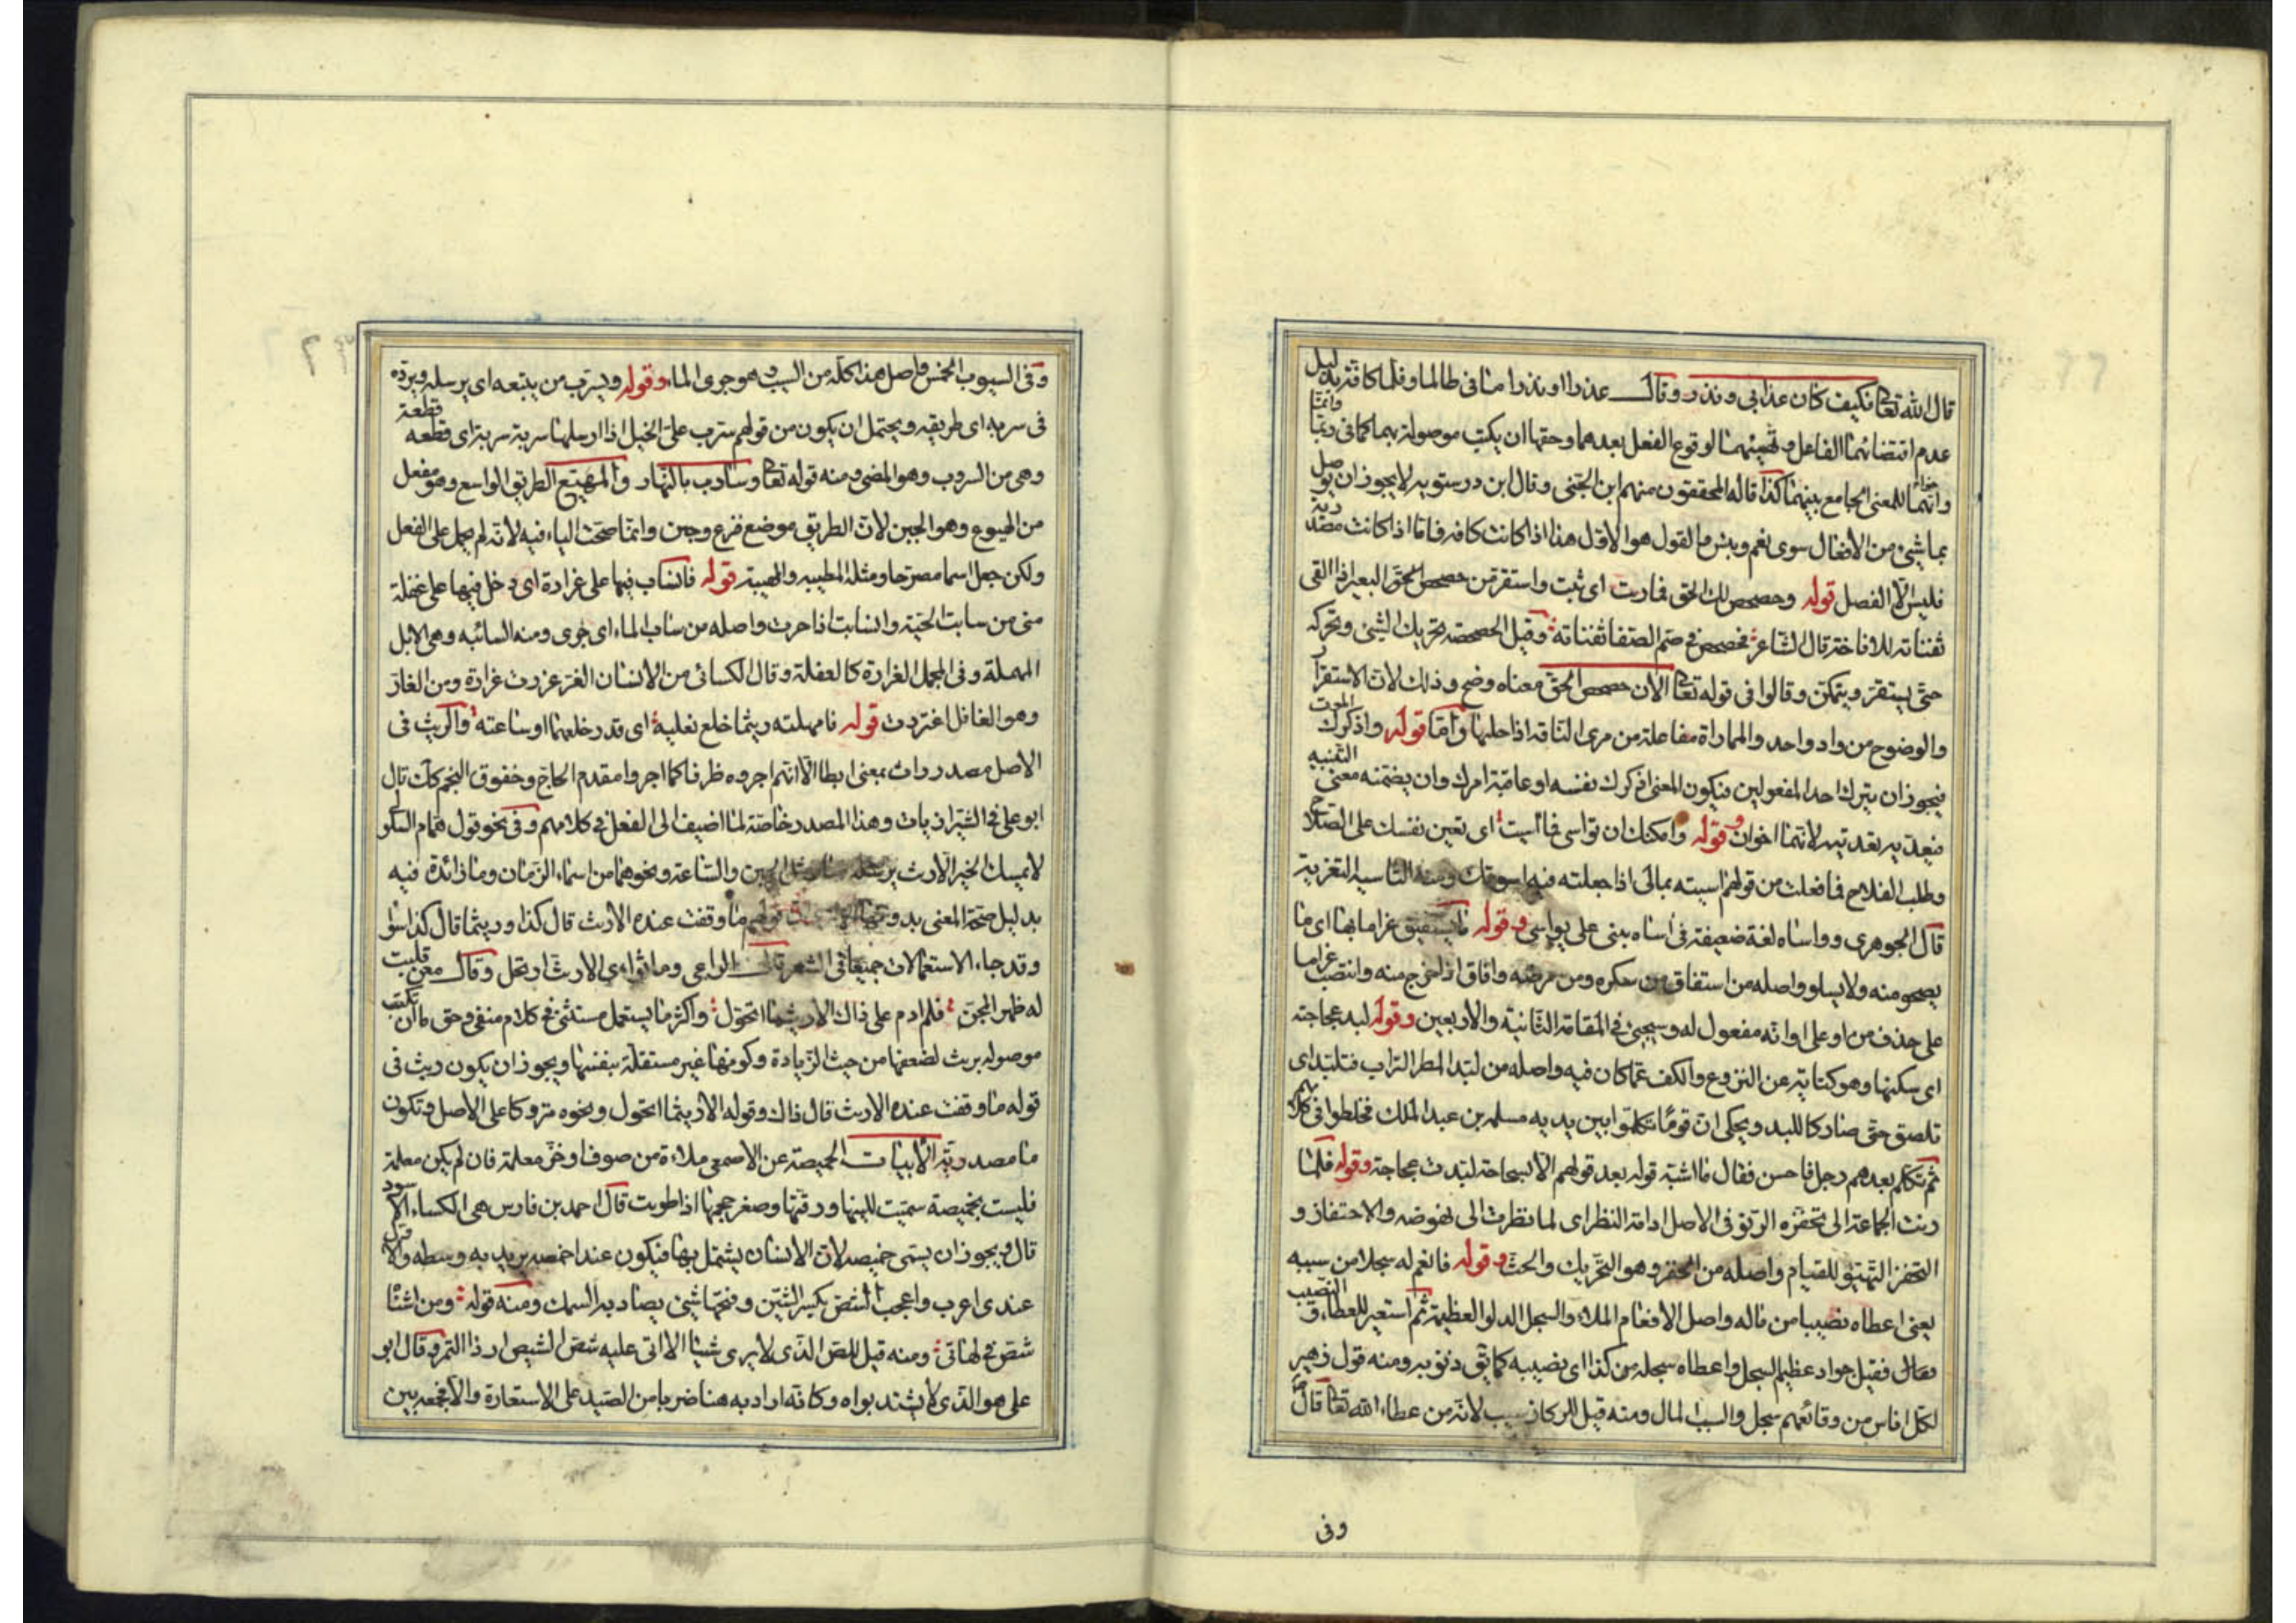 قال الله تعالى فكيف كان عذابى ونذر وقال عذرا او نذرا وما فى طالما وقلما كافة بدليل
عدم اقتضائهما الفاعل وتهيئتهما لوقوع الفعل بعدهما وحقها ان يكتب موصولة بهما كما فى ربما وانما
واخواتها للمعنى الجامع بينهما كذا قاله المحققون منهم ابن الجنى وقال ابن درستويه لا يجوز ان يوصل
بما شئ من الافعال سوى نعم وبئس والقول هو الاول هذا اذا كانت كافه فاما اذا كانت مصدرية
فليس الا الفصل قوله وحصحص لك الحق فماريت اى ثبت واستقر من حصحص البعير اذا القى
ثفناته للاناخة قال الشاعر فحصحص فى صم الصفا ثفناته وقيل الحصحصة تحريك الشئ وتحركه
حتى يستقر ويتمكن وقالوا فى قوله تعالى الان حصحص الحق معناه وضح وذلك لان الاستقرار
والوضوح من واد واحد والمماراة مفاعلة من مرى الناقة اذا حلبها واما قوله واذكرك الموت
فيجوز ان يترك احد المفعولين فيكون المعنى اذكرك نفسه او عاقبة امرك وان يضمنه معنى التنبيه
فيعديه تعديته لانهما اخوان وقوله وامكنك ان تواسى فما آسيت اى تعين نفسك على الصلاح
وطلب الفلاح فما فعلت من قولهم اسيته بمالى اذا جعلته فيه اسوتك ومنه التاسية التعزية
قال الجوهرى وواساه لغة ضعيفة فى اساه يبنى على يواسى وقوله ما يستفيق غراما بها اى ما
يصحو منه ولا يسلو واصله من استفاق من سكره ومن مرضه وافاق اذا خرج منه وانتصب غراما
على حذف من او على اوانه مفعول له وسيجئ فى المقامة الثانية والاربعين وقوله لبد عجاجته
اى سكنها وهو كناية عن النزوع والكف عما كان فيه واصله من لبد المطر التراب فتلبد اى
تلصق حتى صار كاللبد ويحكى ان قوما تكلموا بين يديه مسلمه بن عبد الملك فخلطوا فى كلامهم
ثم تكلم بعدهم رجل فاحسن فقال ما اشبه قوله بعد قولهم الا بسحابة لبدت عجاجة وقوله فلما
رنت الجماعة الى تحفزه الرنو فى الاصل ادامة النظر اى لما نظرت الى نهوضه والاحتفاز و
التحفز التهيؤ للقيام واصله من الحفز وهو التحريك والحث وقوله فافعم له سجلا من سيبه
يعنى اعطاه نصيبا من ماله واصل الافعام الملاء والسجل الدلو العظيمة ثم استعير للعطاء والنصيب
فقال فقيل جواد عظيم السجل واعطاه سجله من كذا اى نصيبه كما ذنوبه ومنه قول زهير
لكل اناس من وقائعهم سجل والسيب المال ومنه قيل للركاز سيب لانه من عطاء الله تعالى قال
وفى
وفى السيوب الخمس واصل هذا كله من السيب وهو جرى الماء وقوله ويسرب من يتبعه اى يرسله ويرده
فى سربه اى طريقه ويحتمل ان يكون من قولهم سرب على الخيل اذا ارسلها سربة سربة اى قطعة قطعة
وهى من السروب وهو المضى ومنه قوله تعالى وسارب بالنهار والمهيع الطريق الواسع وهو مفعل
من الهيوع وهو الجبن لان الطريق موضع فزع وجبن وانما صحت الياء فيه لانه لم يحمل على الفعل
ولكن جعل اسما مصرحا ومثله المطيبه والهيبة قوله فانساب فيها على غرارة اى دخل فيها على غفلة
منى من سابت الحية وانسابت اذا جرت واصله من ساب الماء اى جرى ومنه السائبه وهى الابل
المهملة وفى المجمل الغرارة كالغفلة وقال الكسائى من الانسان الغر غررت غرارة ومن الغار
وهو الغافل اغتررت قوله فامهلته ريثما خلع نعليه اى قدر خلعهما او ساعته والريث فى
الاصل مصدر راث بمعنى ابطا الا انهم اجروه ظرفا كما اجروا مقدم الحاج وخفوق النجم كذا قال
ابو على فى الشيرازيات وهذا المصدر خاصة لما اضيف الى الفعل فى كلامهم وفى نحو قول همام السلولى
لا يمسك الخير الا ريث يرسله والساعة ونحوهما من اسماء الزمان وما زائدة فيه
بدليل صحة المعنى بدونها قولهم ما وقفت عنده الا ريث قال كذا وريثما قال كذا سواء
وقد جاء الاستعمالات جميعا فى الشعر قال الراعى وما ثوائى الا ريث ارتحل وقال معن قلبت
له ظهر المجن فلم ادم على ذاك الا ريثما اتحول واكثر ما يستعمل مستثنى فى كلام منفى وحق ما ان تكتب
موصولة بريث لضعفها من حيث الزيادة وكونها غير مستقلة بنفسها ويجوز ان يكون ريث فى
قوله ما وقفت عنده الا ريث قال ذاك وقوله الا ريثما اتحول ونحوه متروكا على الاصل وتكون
ما مصدرية الابيات الخميصة عن الاصمعى ملاءة من صوف او خز معلمة فان لم يكن معلمة
فليست بخميصة سميت للينها ورقتها وصغر حجمها اذا طويت قال احمد بن فارس هى الكساء الاسود
قال ويجوز ان يسمى خميصه لان الانسان يشتمل بها فيكون عند اخمصه يريد به وسطه والاول
عندى اعرب واعجب الشص بكسر الشين وفتحها شئ يصاد به السمك ومنه قوله ومن انشا
شص فى لهاتى ومنه قيل للص الذى لا يرى شيئا الا اتى عليه شص الشيص ارذا التمر وقال ابو
على هو الذى لا يشتد نواه وكانه اراد به هنا ضربا من الصيد على الاستعارة والا فجمعه بين